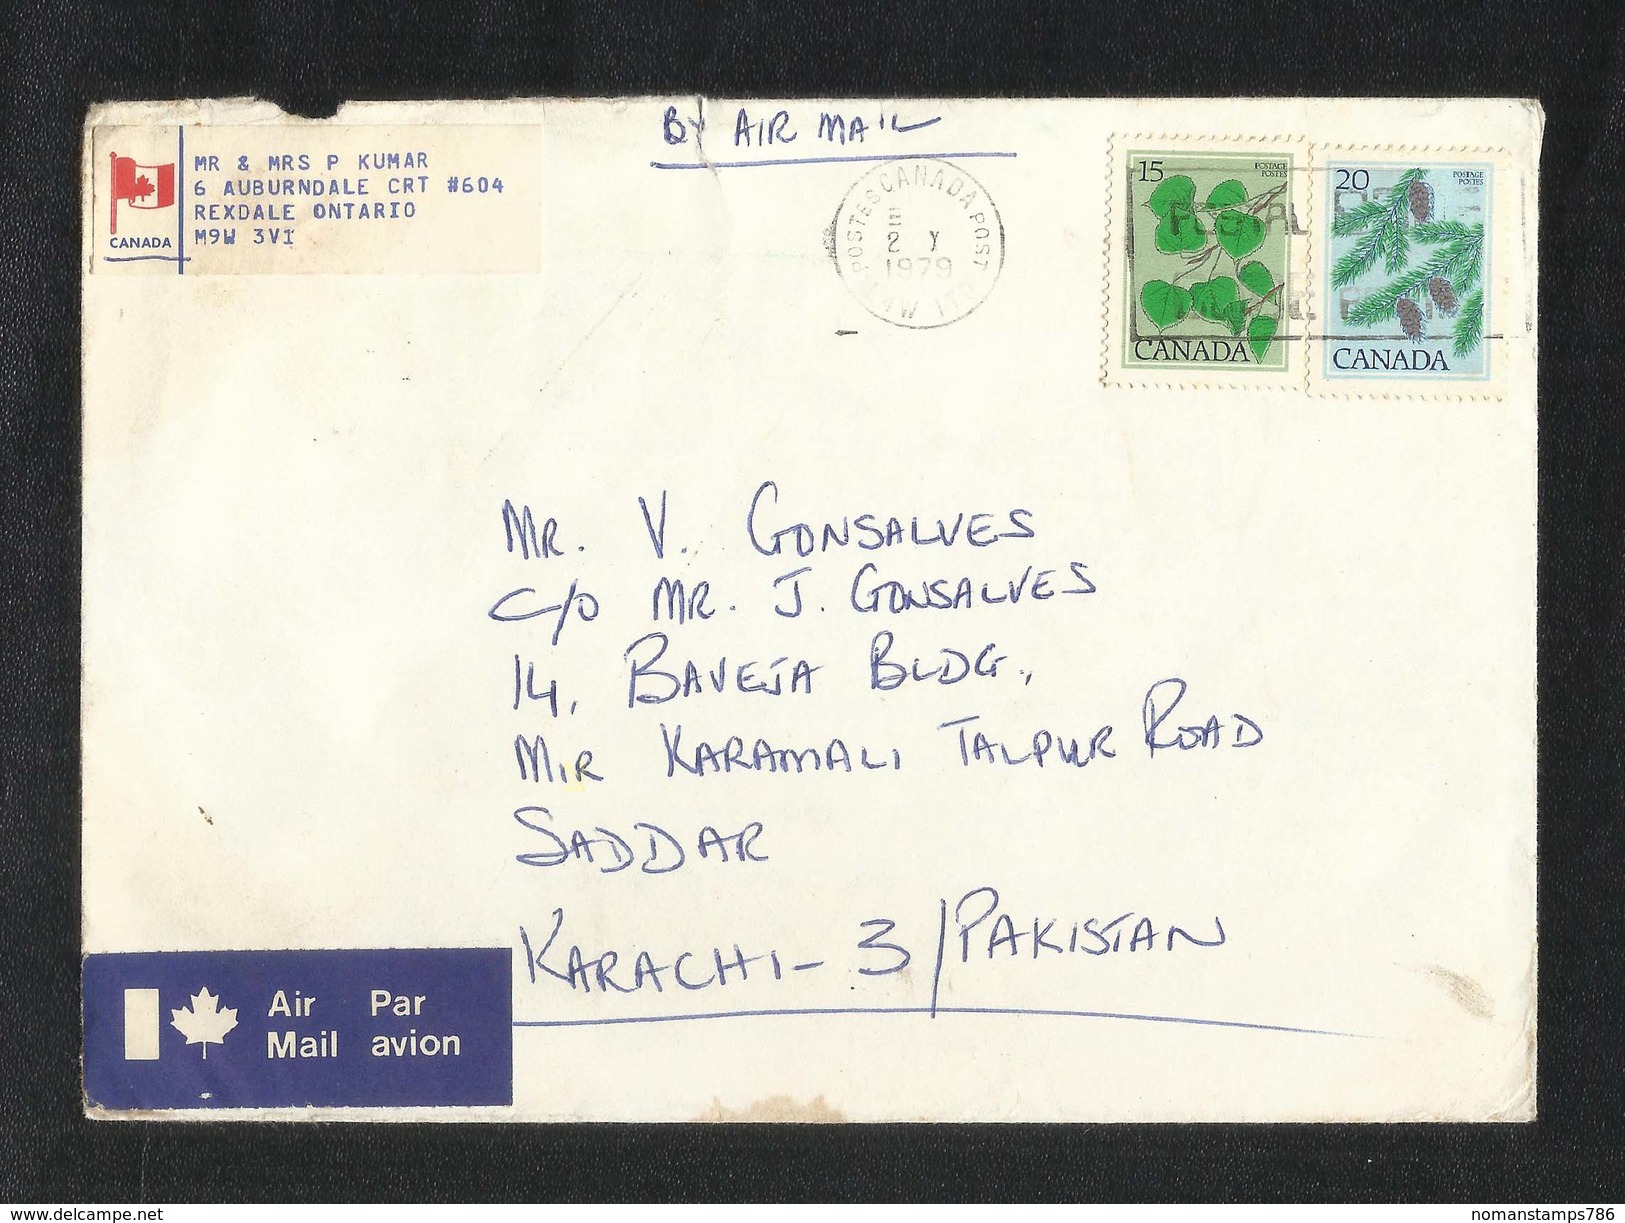 BY AIR MAIL
MR & MRS P KUMAR
6 AUBURNDALE CRT #604
REXDALE ONTARIO
M9W 3V1
CANADA
POSTES CANADA POST
1979
15
POSTAGE
POSTES
CANADA
20
POSTAGE
POSTES
CANADA
MR. V. GONSALVES
C/O MR. J. GONSALVES
14, BAVEJA BLDG.,
MIR KARAMALI TALPUR ROAD
SADDAR
KARACHI - 3/PAKISTAN
Air Par
Mail avion
www.delcampe.net
nomanstamps786